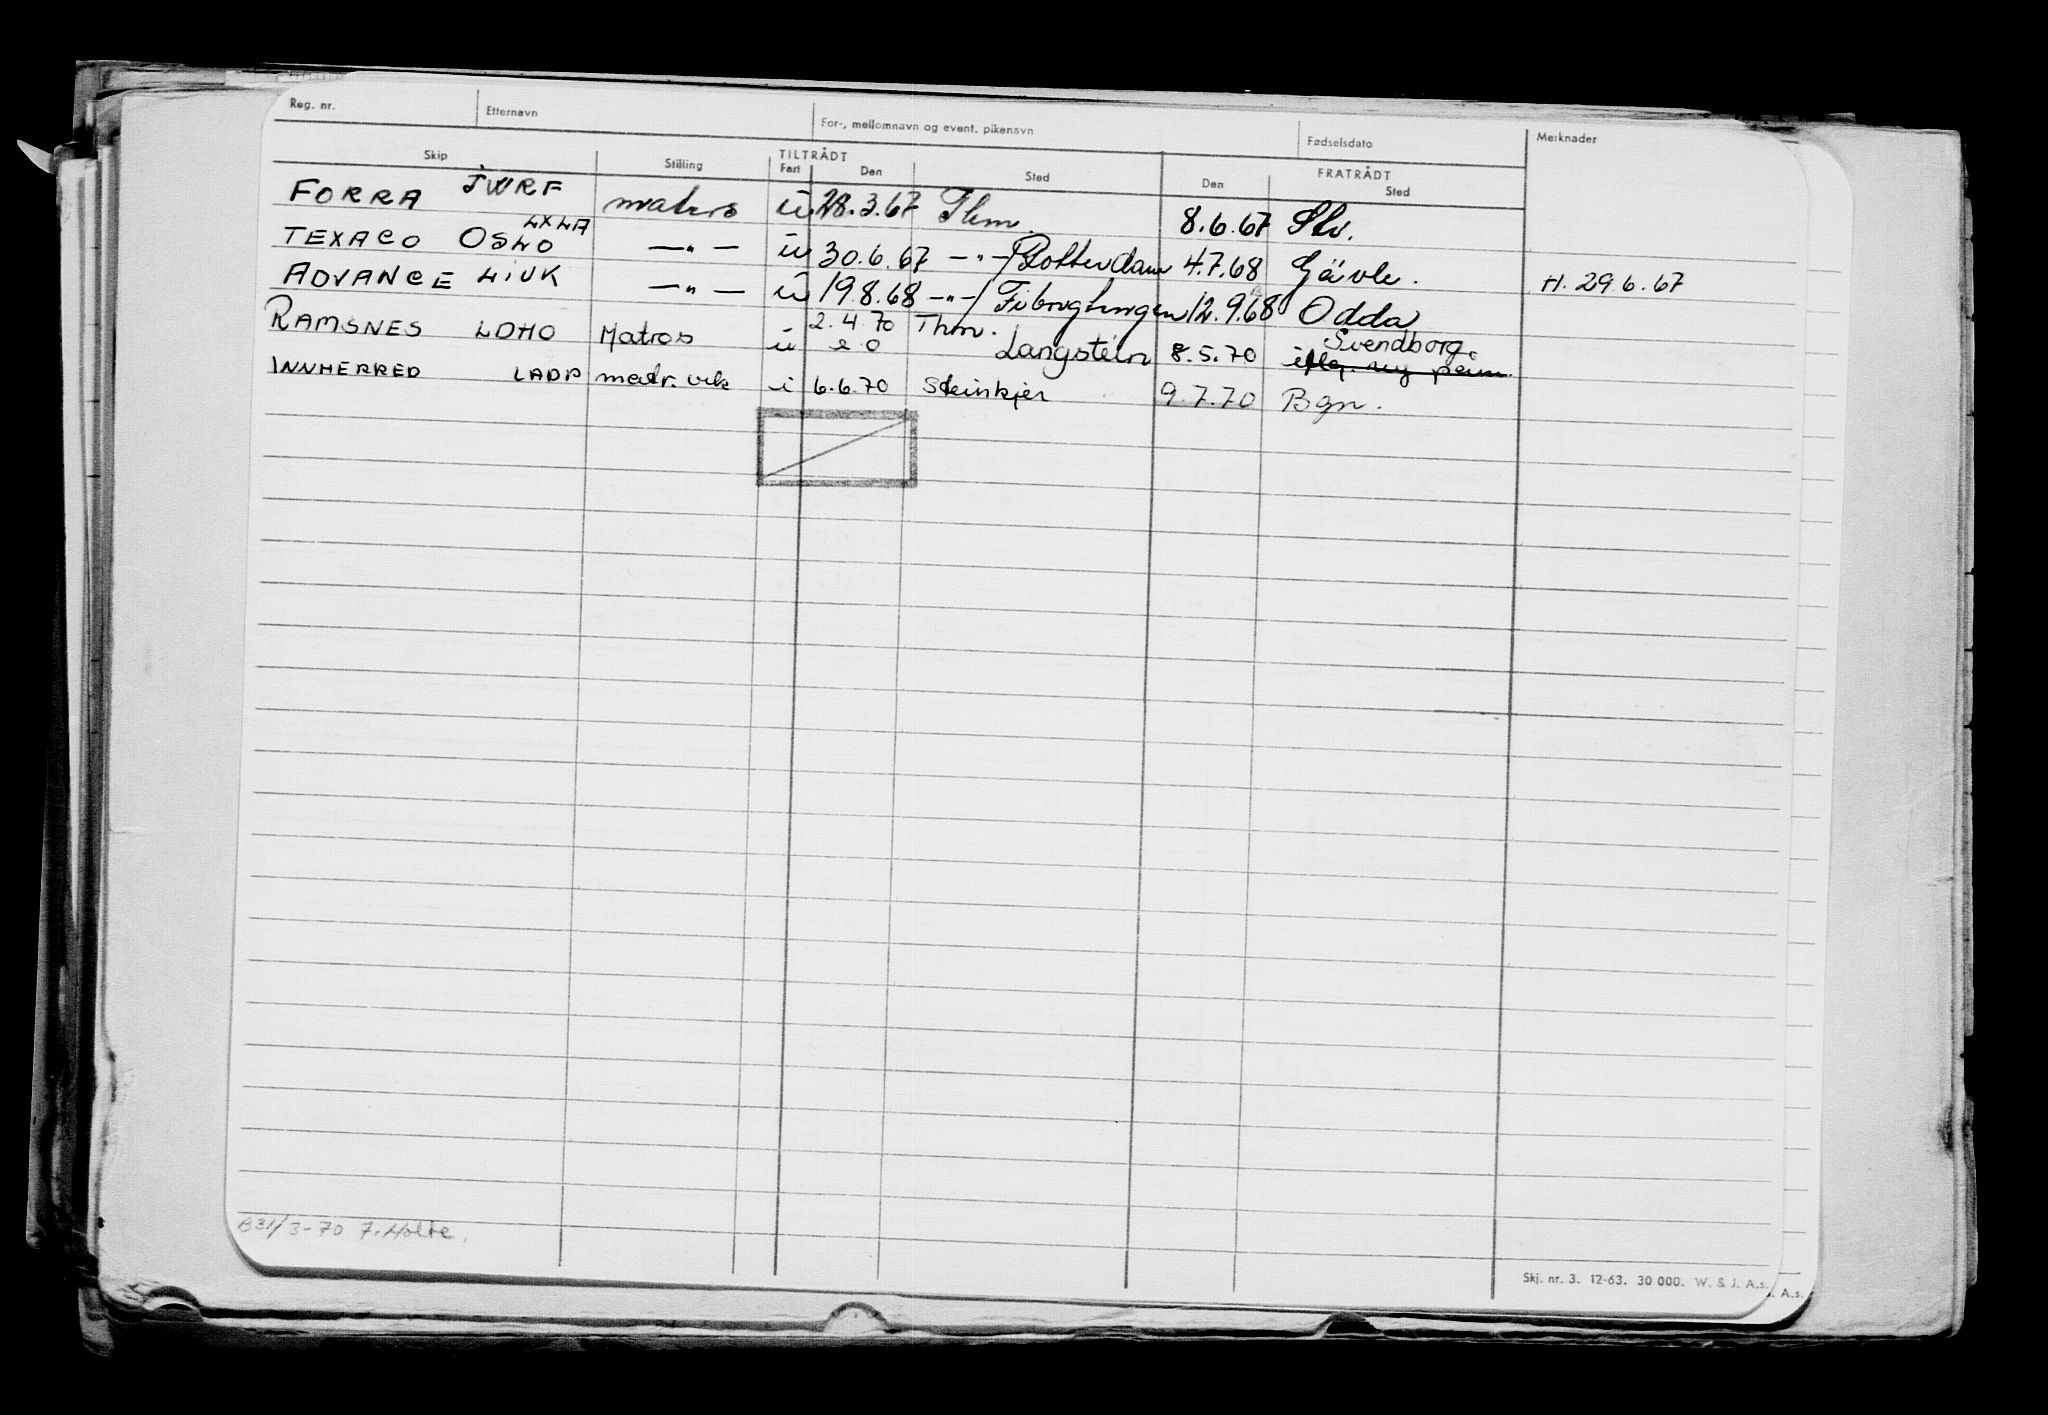 Reg. nr. Etternavn For-, mellomnavn og event. pikenavn Fødselsdato Merknader
Skip Stilling TILTRÅDT FRATRÅDT
Fart Den Sted Den Sted
FORRA JWRF matros u 28.3.67 Thm. 8.6.67 Slv.
TEXACO OSLO LXLA —"— u 30.6.67 —"—/Rotterdam 4.7.68 Gävle. H. 29.6.67
ADVANCE LIVK —"— u 19.8.68 —"—/ 12.9.68 Odda
RAMSNES LDHO Matros u 2.4.70 Thm. Langstein 8.5.70 Svendborg.
INNHERRED LADP matr. vik i 6.6.70 Steinkjer 9.7.70 Bgn.
B31/3-70 7. Holte.
Skj. nr. 3. 12-63. 30 000. W. & J. A.s.
A.s.